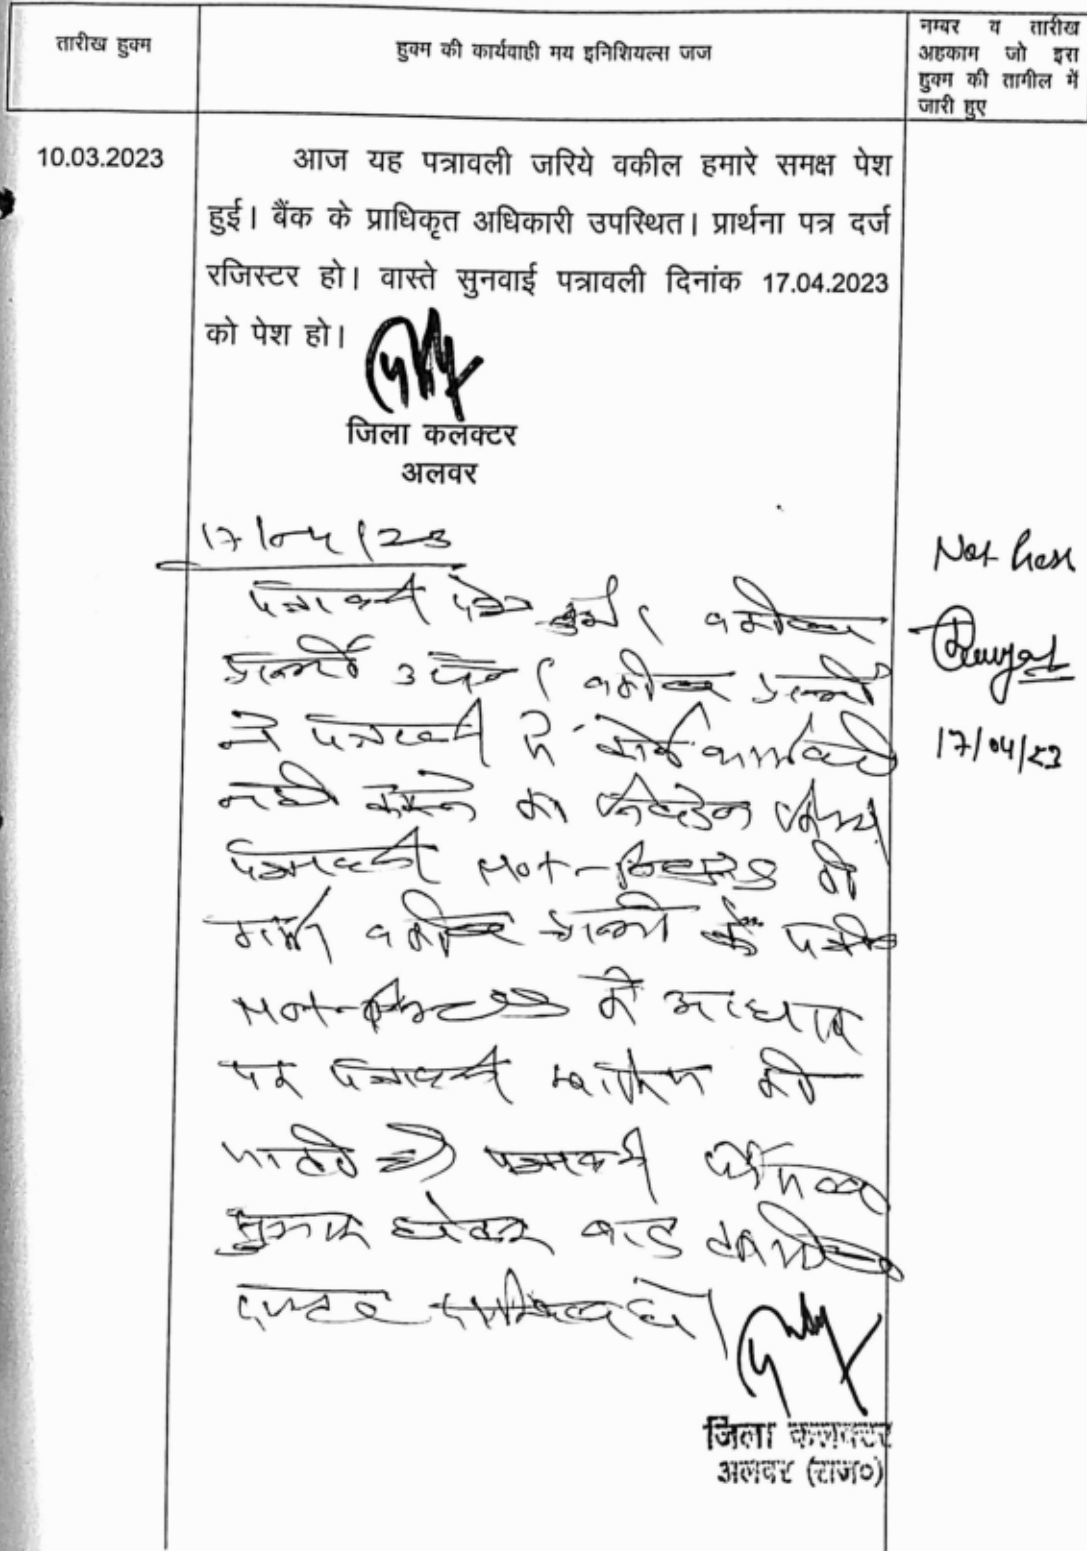 तारीख हुक्म
हुक्म की कार्यवाही मय इनिशियल्स जज
नम्बर व तारीख
अहकाम जो इस
हुक्म की तामील में
जारी हुए
10.03.2023
आज यह पत्रावली जरिये वकील हमारे समक्ष पेश
हुई। बैंक के प्राधिकृत अधिकारी उपस्थित। प्रार्थना पत्र दर्ज
रजिस्टर हो। वास्ते सुनवाई पत्रावली दिनांक 17.04.2023
को पेश हो।
जिला कलक्टर
अलवर
17/04/23
पत्रावली पेश हुई। वकील
प्रार्थी उप०। वकील प्रार्थी
ने पत्रावली में कोई कार्यवाही
नहीं करने का निवेदन किया
पत्रावली Not-प्रेस्ड की
गई। वकील प्रार्थी के
Not-प्रेस्ड के आधार
पर पत्रावली खारिज की
जाती है। पत्रावली फैसल
शुमार होकर बाद तकमील
दफ्तर हो।
Not
17/04/23
जिला कलक्टर
अलवर (राज०)